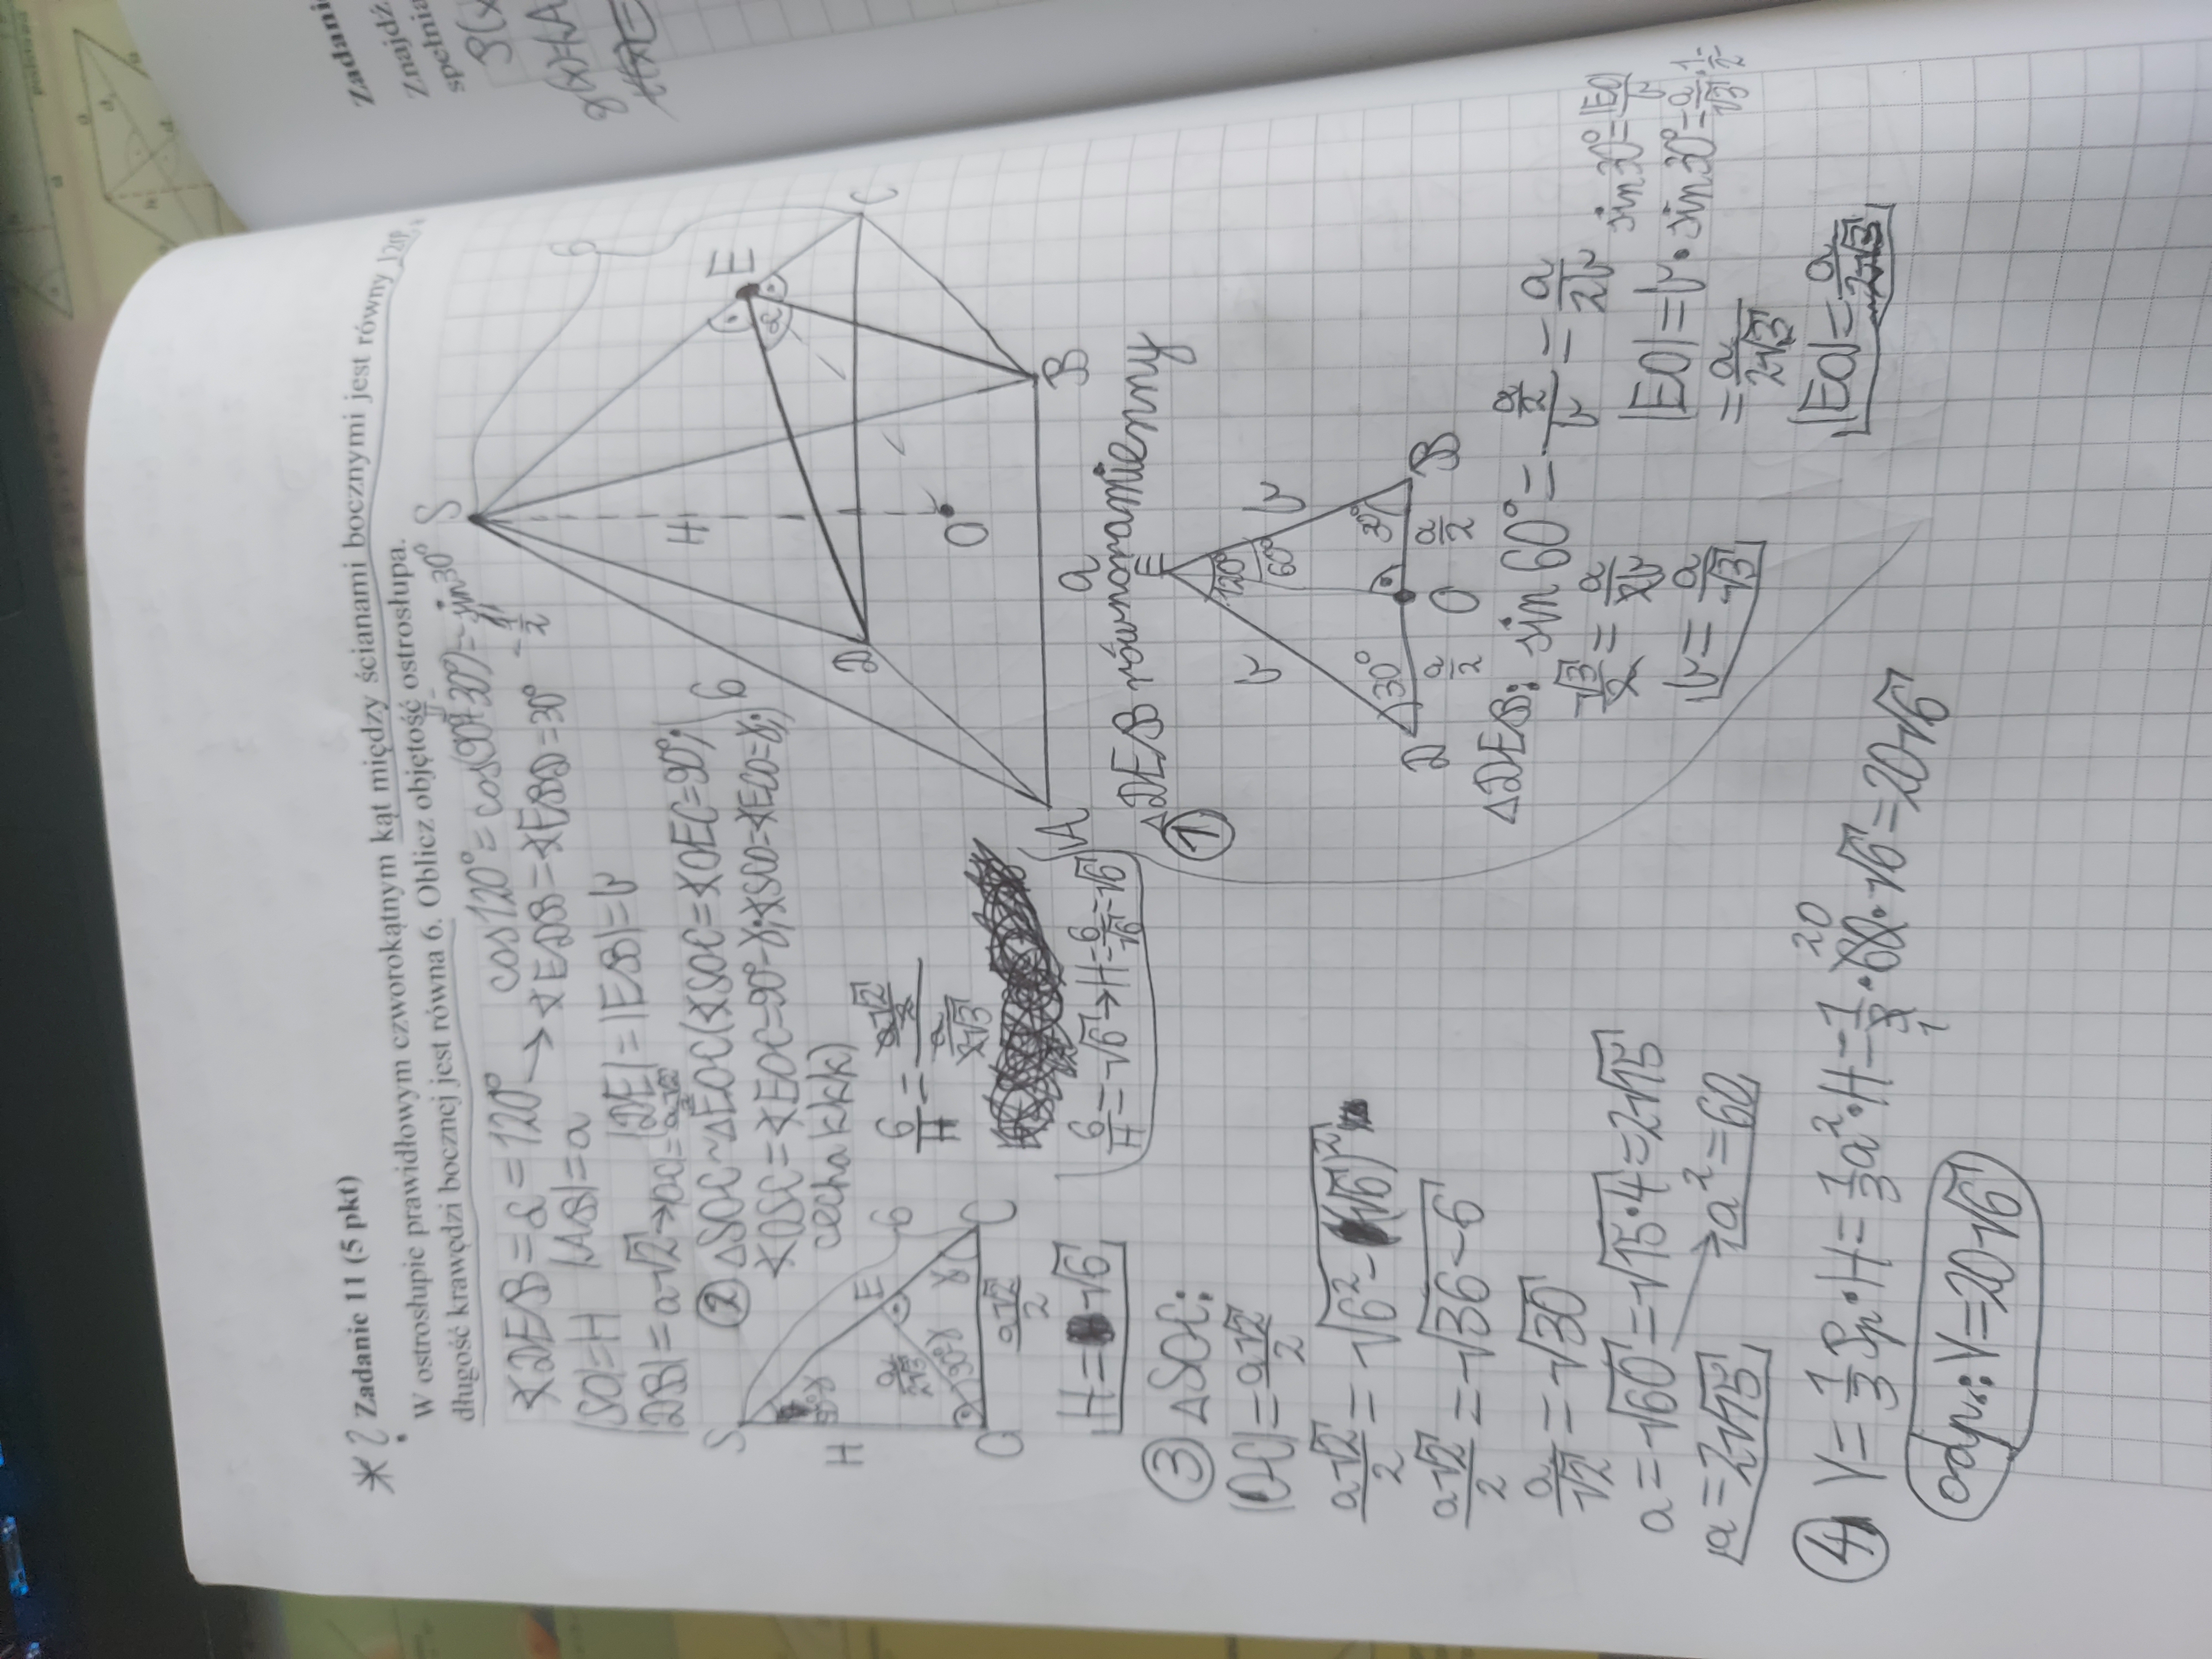 Zadanie 11 (5 pkt)
W ostrosłupie prawidłowym czworokątnym kąt między ścianami bocznymi jest równy 120°,
długość krawędzi bocznej jest równa 6. Oblicz objętość ostrosłupa.
∢DEB=α=120° cos120°=cos(90°+30°)=-sin30°
=-1/2
→∢EDB=∢EBD=30°
|SO|=H |AB|=a
|DE|=|EB|=b
|DB|=a√2→|OC|=a√2/2
② △SOC~△EOC(∢SOC=∢OEC=90°;
∢OSC=∢EOC=90°-γ; ∢SCO=∢ECO=γ;)
cecha kkk)
S
E
6
H
90°-γ
a/2√3
90°-γ
γ
O
C
a√2/2
6/H = (a√2/2)/(a/2√3)
6/H=√6→H=6/√6=√6
H=√6
S
6
H
E
α
D
C
O
A
B
a
① △DEB równoramienny
E
b
b
120°
60°
30°
30°
D
O
B
a/2
a/2
△DEB: sin60°=(a/2)/b=a/2b
√3/2=a/2b
b=a/√3
sin30°=|EO|/b
|EO|=b·sin30°=a/√3·1/2
=a/2√3
|EO|=a/2√3
③ △SOC:
|OC|=a√2/2
a√2/2=√6²-(√6)²
a√2/2=√36-6
a/√2=√30
a=√60=√15·4=2√15
a=2√15
→a²=60
④ V=1/3Pp·H=1/3a²·H=1/3·60·√6=20√6
20
1
odp.: V=20√6
Zadanie
Znajdź
spełnia